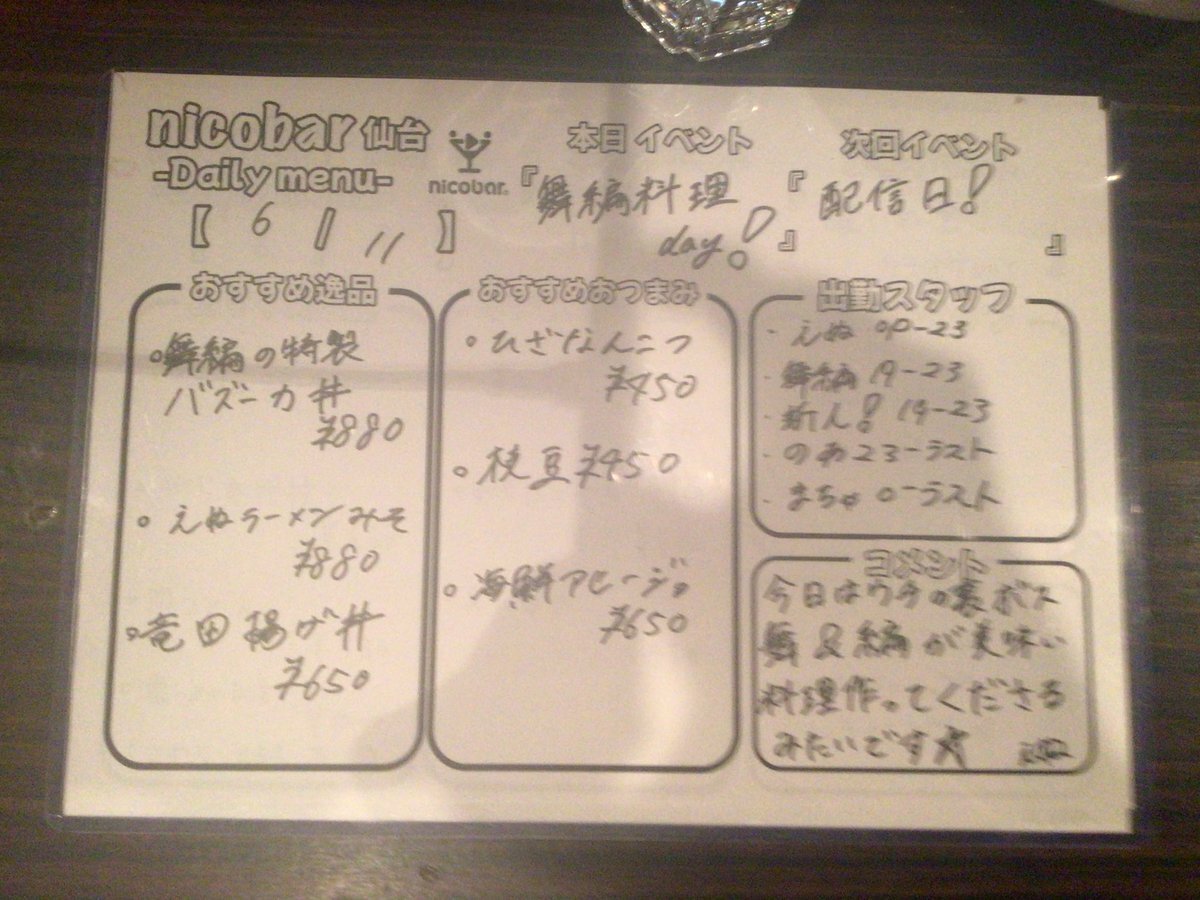 nicobar 仙台
-Daily menu-
【 6 / 11 】
nicobar.
本日イベント
『舞編料理
day! 』
次回イベント
『配信日!
』
おすすめ逸品
。舞編の特製
バズーカ丼
¥880
。えぬラーメンみそ
¥880
。竜田揚げ丼
¥650
おすすめおつまみ
。ひざなんこつ
¥450
。枝豆 ¥450
。海鮮アヒージョ
¥650
出勤スタッフ
・えぬ -23
・舞編 19-23
・新人! 19-23
・のあ 23-ラスト
・まちゅ 0-ラスト
コメント
今日はウチの裏ボス
舞&編が美味い
料理作ってくださる
みたいです☆